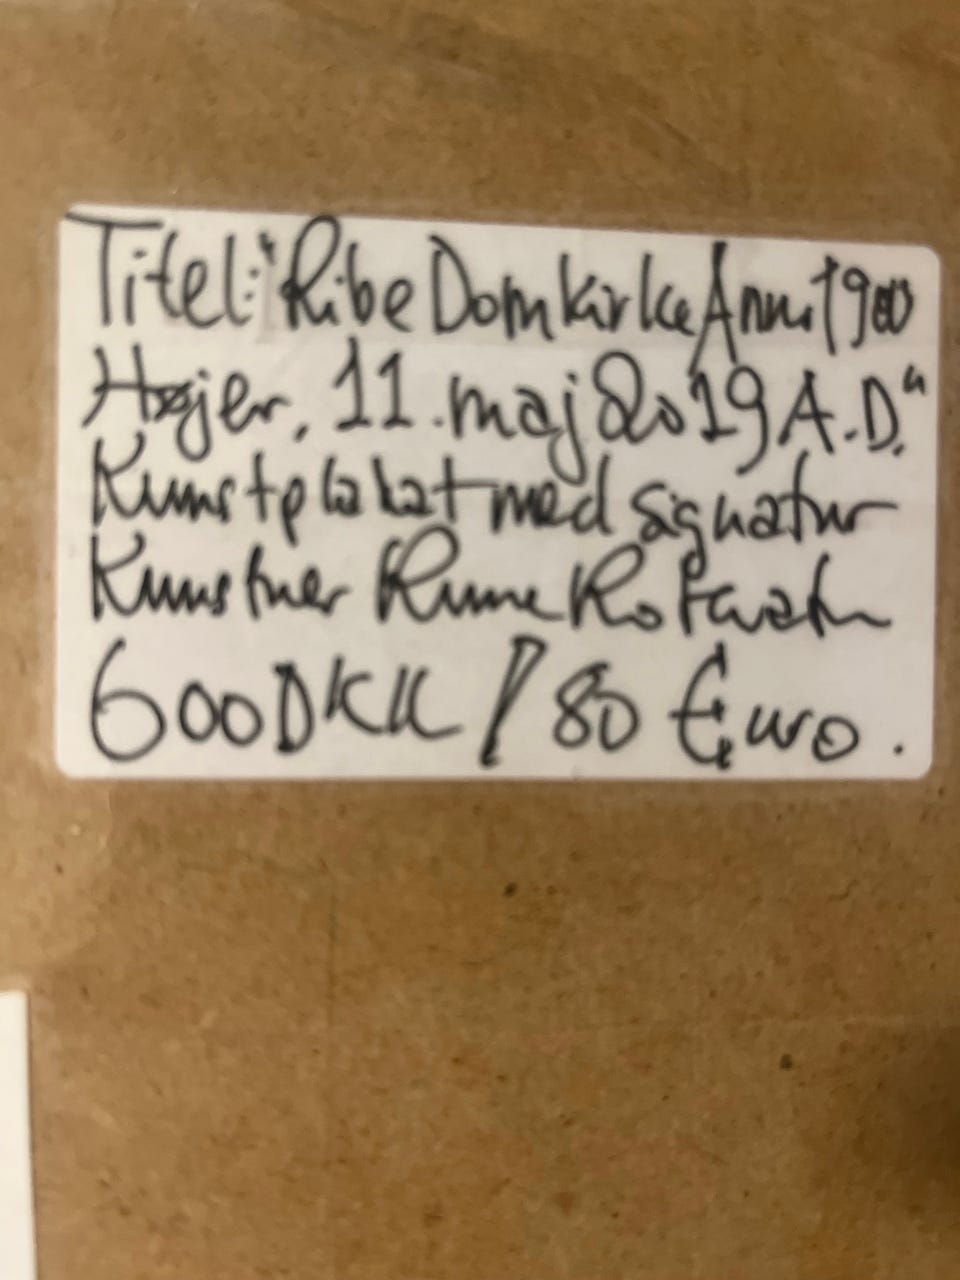 Titel: "Ribe Domkirke Anni 1900
Højer, 11. maj 2019 A.D."
Kunstplakat med signatur
Kunstner Rune
600 DKK / 80 Euro.